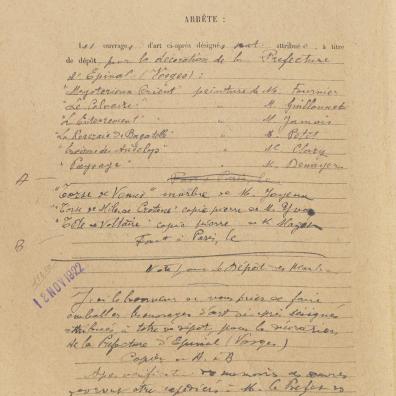 ARRÊTE :
Les ouvrages d'art ci-après désignés sont attribués à titre
de dépôt pour la décoration de la Préfecture
d'Epinal (Vosges) :
"Mystérieux Orient" peinture de M. Fournier
"Le Calvaire" " M. Guillonnet
"L'Enterrement" " M. Jamois
"La Roseraie de Bagatelle" " M. Petit
" " M. Clary
"Paysage" " M.
A
"Torse de Vénus" marbre de M.
"Torse de Milon de Crotone" copie pierre de M.
"Tête de Voltaire" copie pierre de M.
B Fait à Paris, le
Note pour le Dépôt des Marbres
12 NOV 1922
J'ai l'honneur de vous prier de faire
emballer les ouvrages d'art ci-après désignés
attribués à titre de dépôt pour la décoration
de la Préfecture d'Epinal (Vosges)
Copier de A à B
Après vérification ces œuvres
devront être expédiées à M. le Préfet